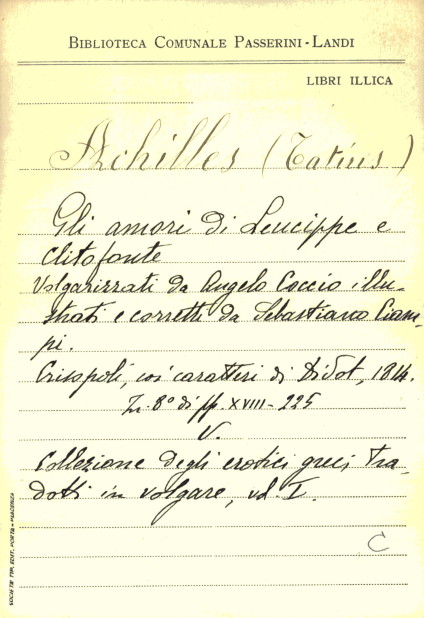 BIBLIOTECA COMUNALE PASSERINI-LANDI
LIBRI ILLICA
Achilles (Tatius)
Gli amori di Leucippe e
Clitofonte
Volgarizzati da Angelo Coccio illu-
strati e corretti da Sebastiano Ciam-
pi.
Crisopoli, coi caratteri di Didot, 1814.
In. 8° di pp. XVIII-225
V.
Collezione degli erotici greci tra-
dotti in volgare, vol. I.
C
SOCIETÀ TIP. EDIT. PORTA - PIACENZA